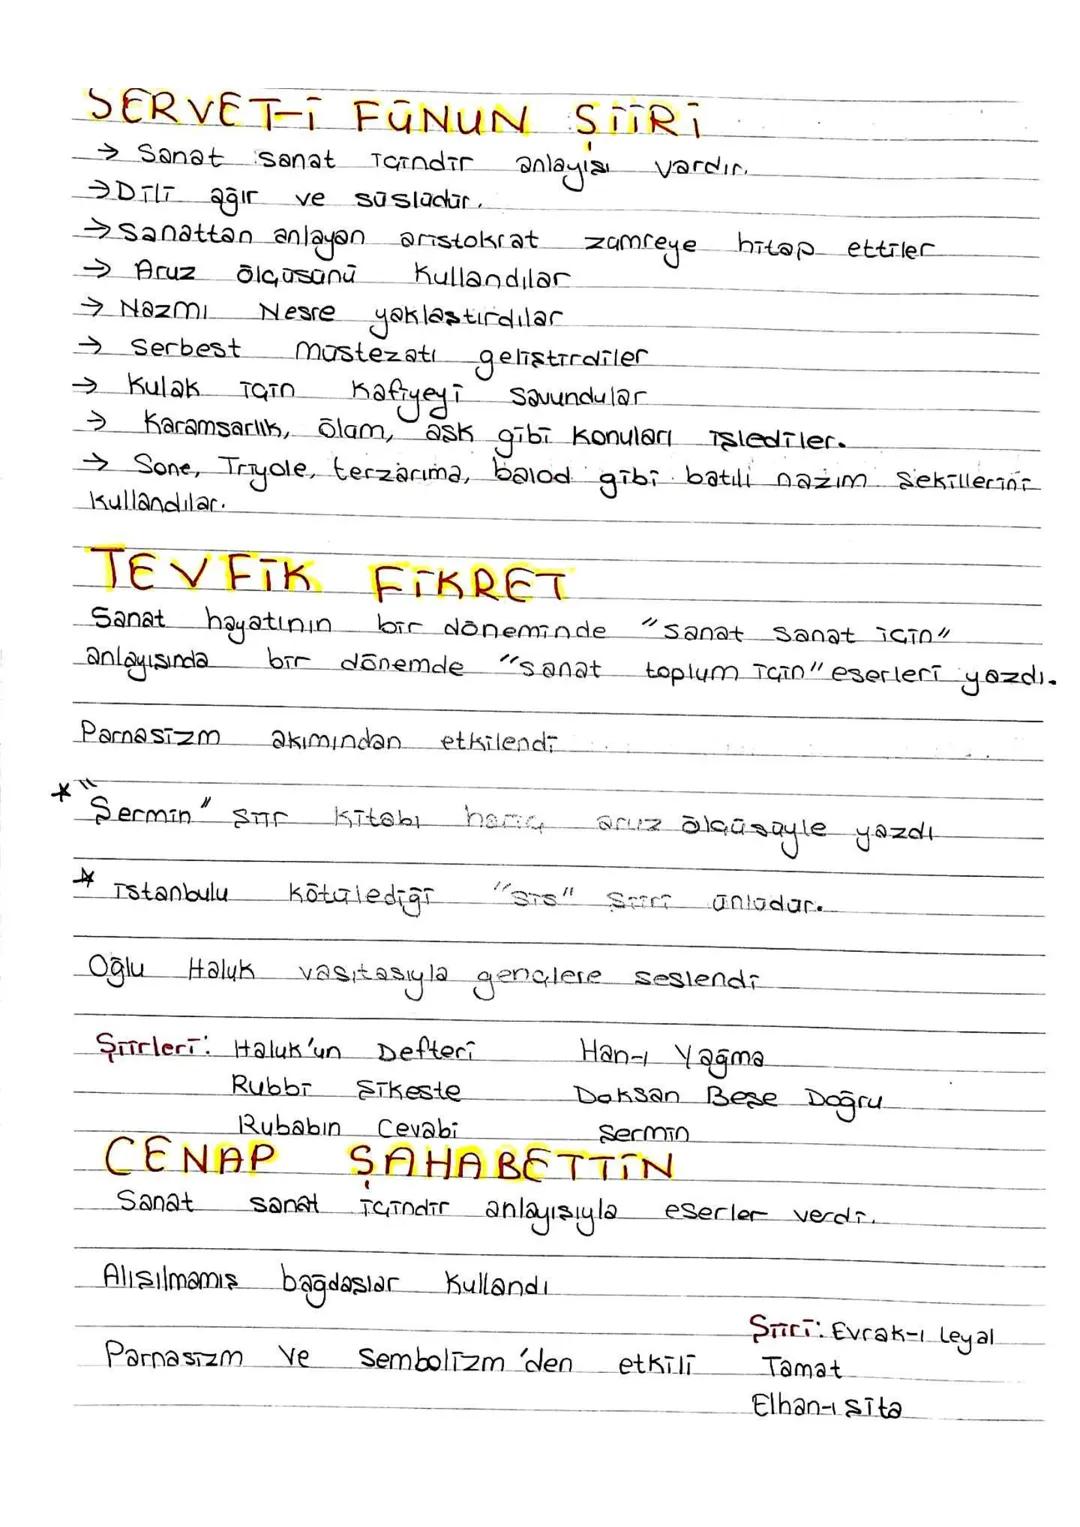 SERVET-İ FÜNUN ŞİİRİ
→ Sanat sanat içindir anlayışı vardır.
→ Dili ağır ve süslüdür.
→ Sanattan anlayan aristokrat zümreye hitap ettiler
→ Aruz ölçüsünü kullandılar
→ Nazmı Nesre yaklaştırdılar
→ Serbest müstezatı geliştirdiler
→ Kulak için kafiyeyi savundular
→ Karamsarlık, ölüm, aşk gibi konuları işlediler.
→ Sone, Triyole, terzarima, balad gibi batılı nazım şekillerini
kullandılar.
TEVFİK FİKRET
Sanat hayatının bir döneminde "sanat sanat için"
anlayışında bir dönemde "sanat toplum için" eserleri yazdı.
Parnasizm akımından etkilendi
* "Şermin" şiir kitabı hariç aruz ölçüsüyle yazdı
* İstanbulu kötülediği "sis" şiiri ünlüdür.
Oğlu Haluk vasıtasıyla gençlere seslendi
Şiirleri: Haluk'un Defteri Han-ı Yağma
Rubbi Şikeste Doksan Beşe Doğru
Rubabın Cevabi Şermin
CENAP ŞAHABETTİN
Sanat sanat içindir anlayışıyla eserler verdi.
Alışılmamış bağdaşlar kullandı
Şiiri: Evrak-ı Leyal
Parnasizm ve Sembolizm'den etkili Tamat
Elhan-ı şita